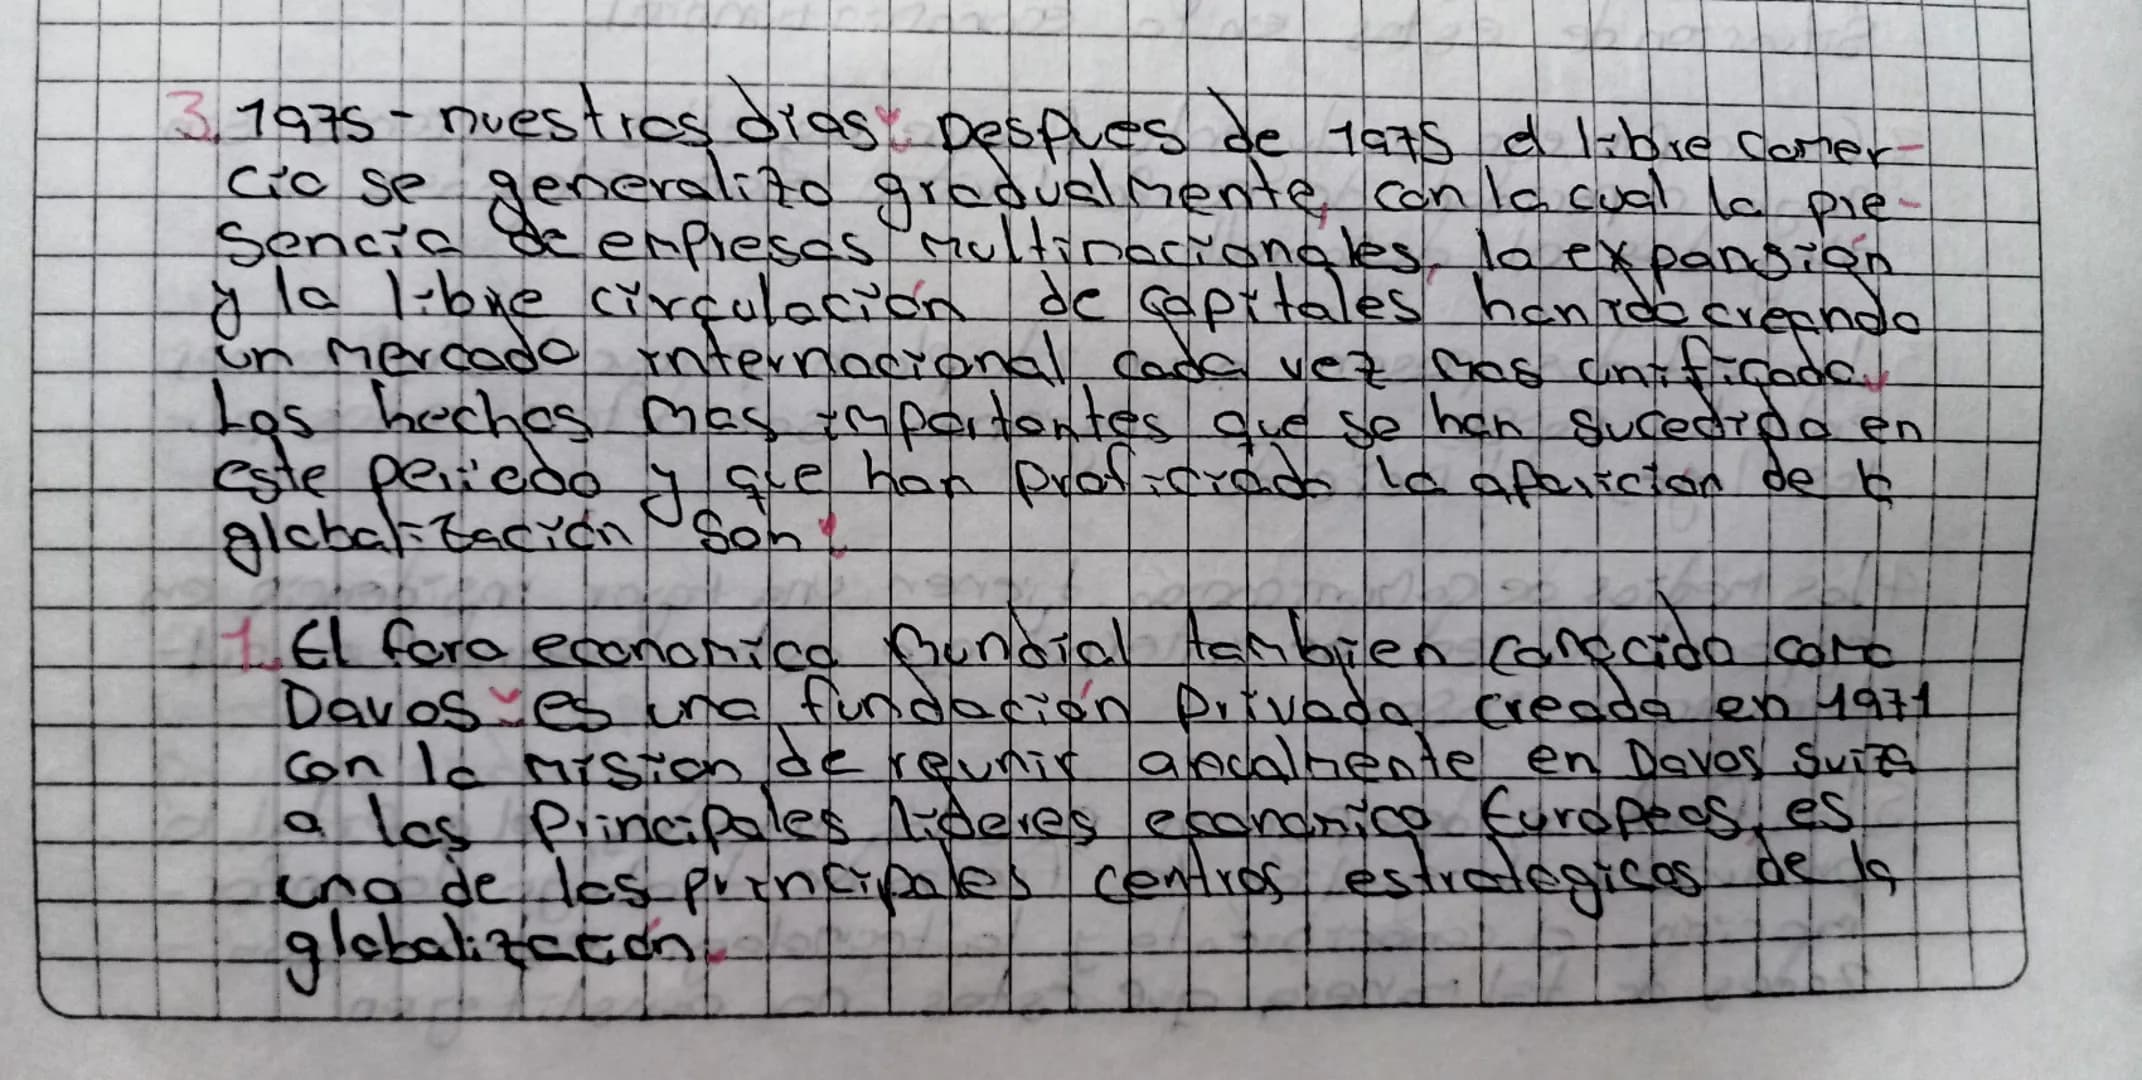 3. 1975 - nuestros dias: Despues de 1975 el libre comer-
cio se generalizo gradualmente, con la cual la pre-
sencia de empresas multinacionales, la expansión
y la libre circulación de capitales han ido creando
un mercado internacional cada vez mas unificado.
Los hechos mas importantes que se han sucedido en
este periodo y que han proficiado la aparicion de la
globalización son:
1. El foro economico mundial tambien conocido como
Davos: es una fundación privada creada en 1971
con la mision de reunir anualmente en Davos Suiza
a los principales lideres economico Europeos, es
uno de los principales centros estrategicos de la
globalización.